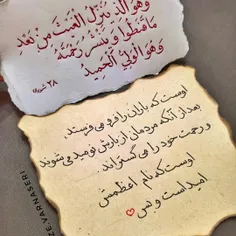 وَهُوَ الَّذِي يُنَزِّلُ الْغَيْثَ مِنْ بَعْدِ
مَا قَنَطُوا وَ يَنْشُرُ رَحْمَتَهُ
وَهُوَ الْوَلِيُّ الْحَمِيدُ
۲۸ شوری
اوست که باران را فرو می فرستد
بعد از آنکه مردمان از بارش نومید می شوند
و رحمت خود را می گستراند
اوست که نام اعظمش
امید است و بس
ZE.VARNASERI